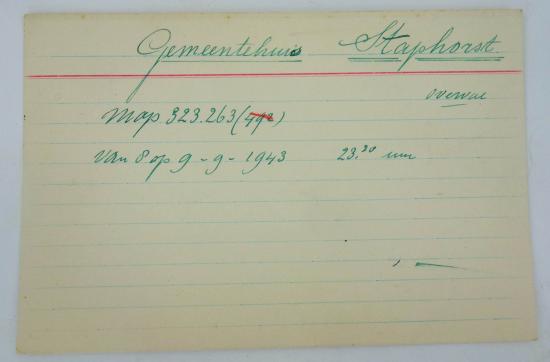 Gemeentehuis Staphorst
overval
map. 323.263 (492)
van 8 op 9-9-1943 23.30 uur